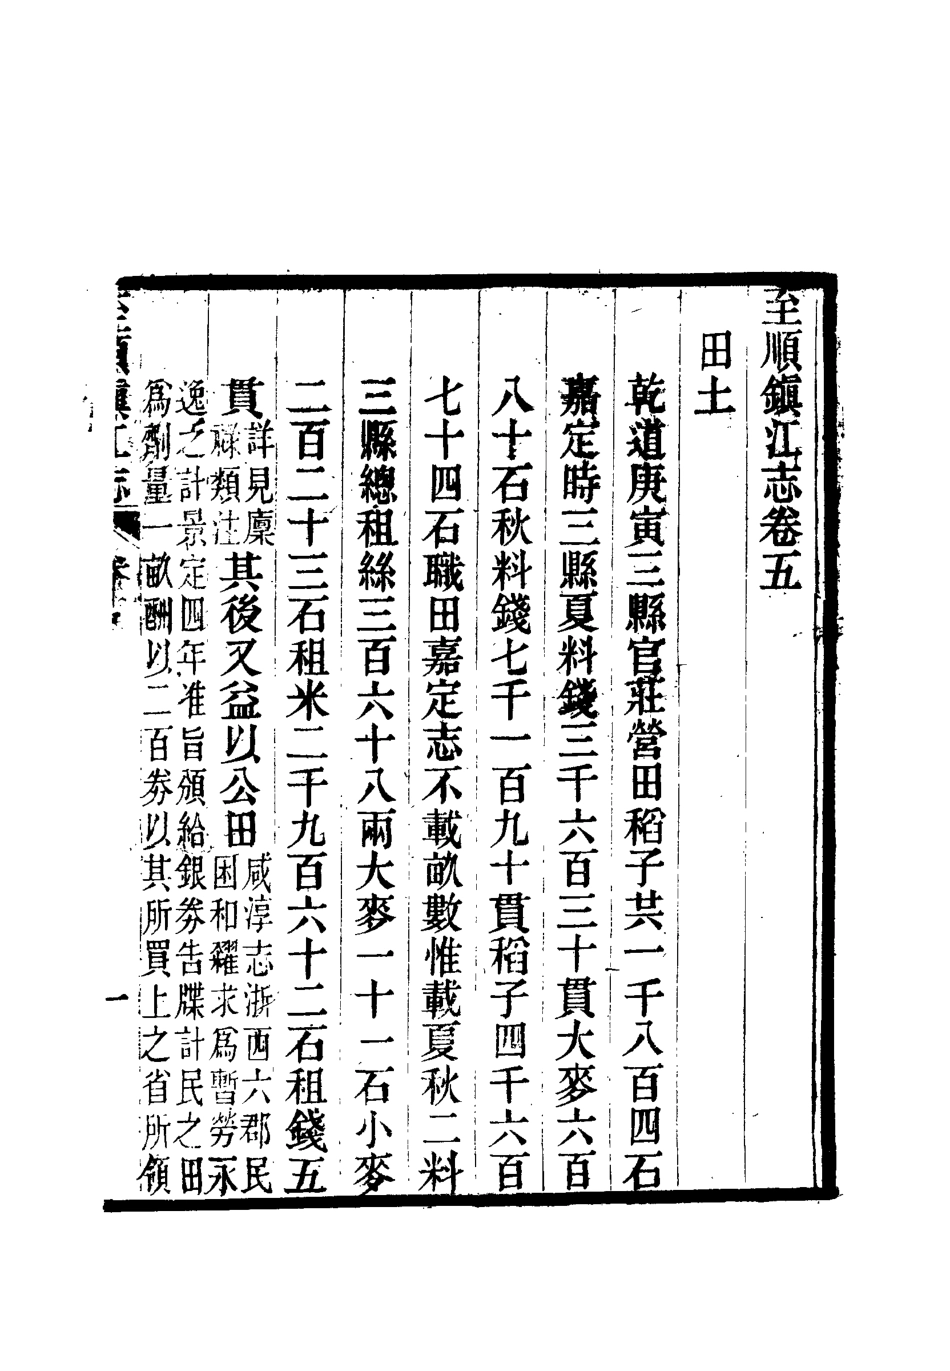 至順鎮江志卷五
田土
乾道庚寅三縣官莊營田稻子共一千八百四石
嘉定時三縣夏料錢三千六百三十貫大麥六百
八十石秋料錢七千一百九十貫稻子四千六百
七十四石職田嘉定志不載畝數惟載夏秋二料
三縣總租絲三百六十八兩大麥一十一石小麥
二百二十三石租米二千九百六十二石租錢五
貫詳見廩祿類注其後又益以公田咸淳志浙西六郡民困和糴求爲暫勞永
逸之計景定四年准旨頒給銀劵告牒計民之田
爲劑量一畝酬以二百劵以其所買上之省所領
至順鎮江志
卷五
一